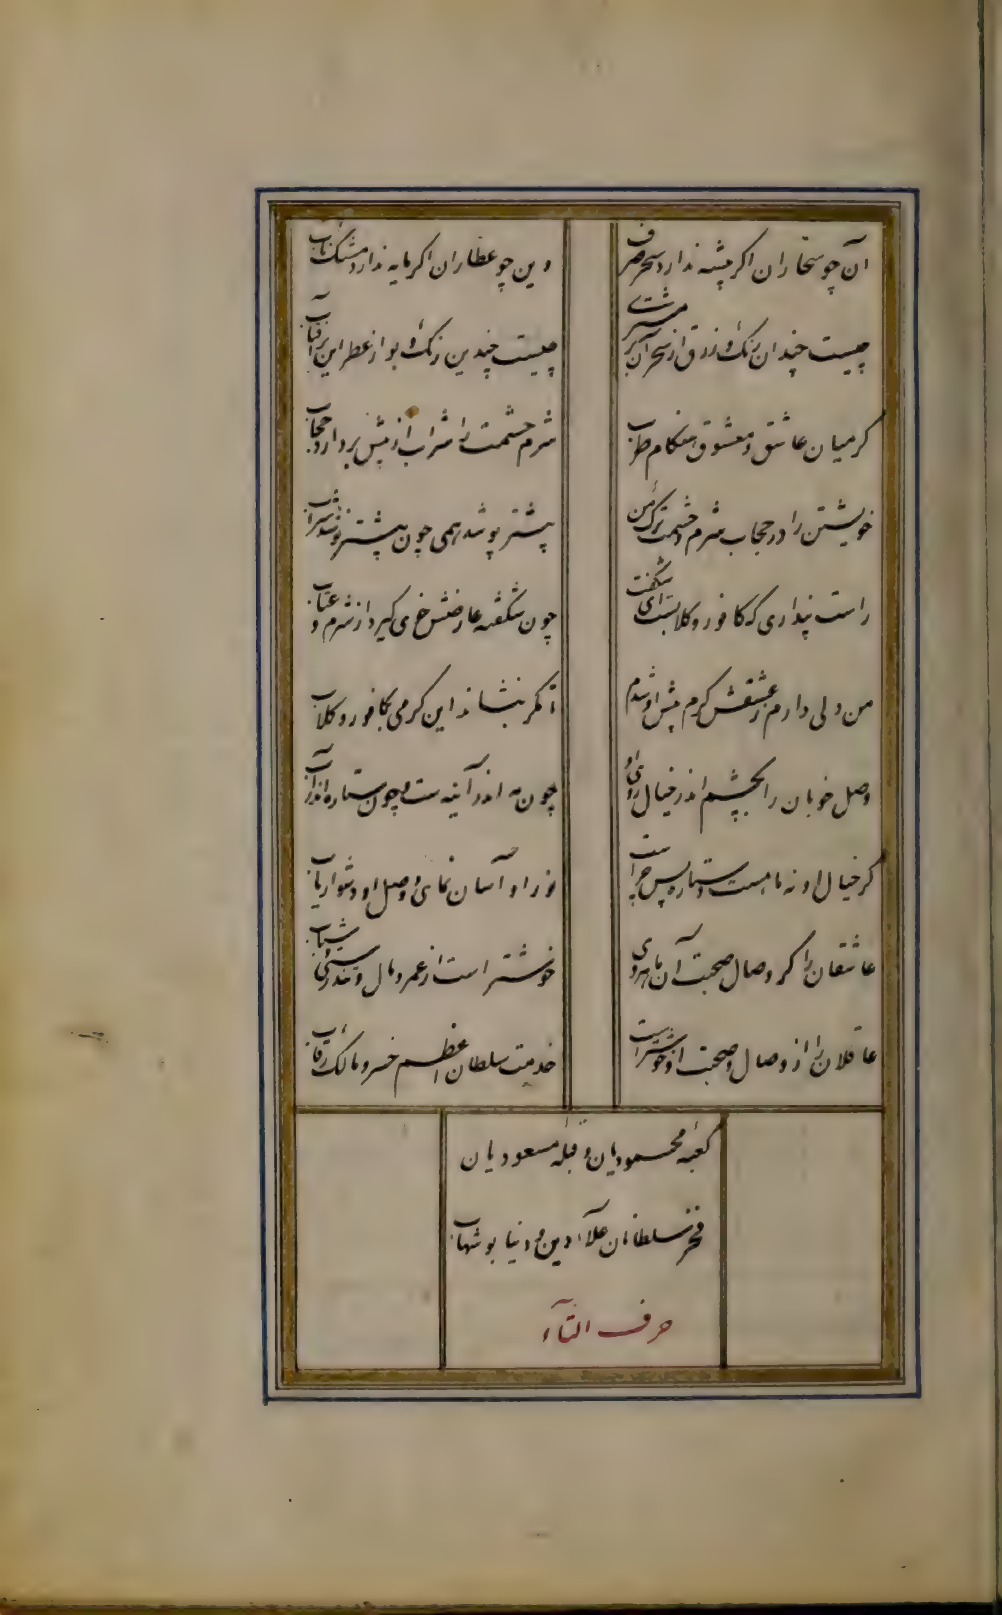 آن چو سحاران اکر پیشه ندارد سحر صرف
وین چو عطاران اکر مایه ندارد مشک ناب
چیست چندان رنک و زرق از سحر آن بر مشتری
چیست چندین رنک و بو از عطر این بر آفتاب
کر میان عاشق و معشوق هنکام طرب
شرم چشمت را شراب از پیش بردارد حجاب
خویشتن را در حجاب شرم چشمت ترک من
بیشتر پوشد همی چون بیشتر نوشد شراب
راست پنداری که کافور و کلابست ای شکفت
چون شکفته عارضش خوی کیرد از شرم و عتاب
من دلی دارم ز عشقش کرم پیش او شدم
تا مکر بنشاند این کرمی بکافور و کلاب
وصل خوبان را بچشم اندر خیال روی او
چون مه اندر آینه ست و چون ستاره اندر آب
کر خیال او نه ماهست و ستاره پس چراست
نور او آسان نمای و وصل او دشوار یاب
عاشقان را کر وصال و صحبت آن ماهروی
خوشتر است از عمر و مال و تندرستی و شباب
عاقلان را از وصال و صحبت او خوشتر است
خدمت سلطان اعظم خسرو مالک رقاب
کعبه محمودیان و قبله مسعودیان
فخر سلطانان علاء دین و دنیا بو شهاب
حرف التاء